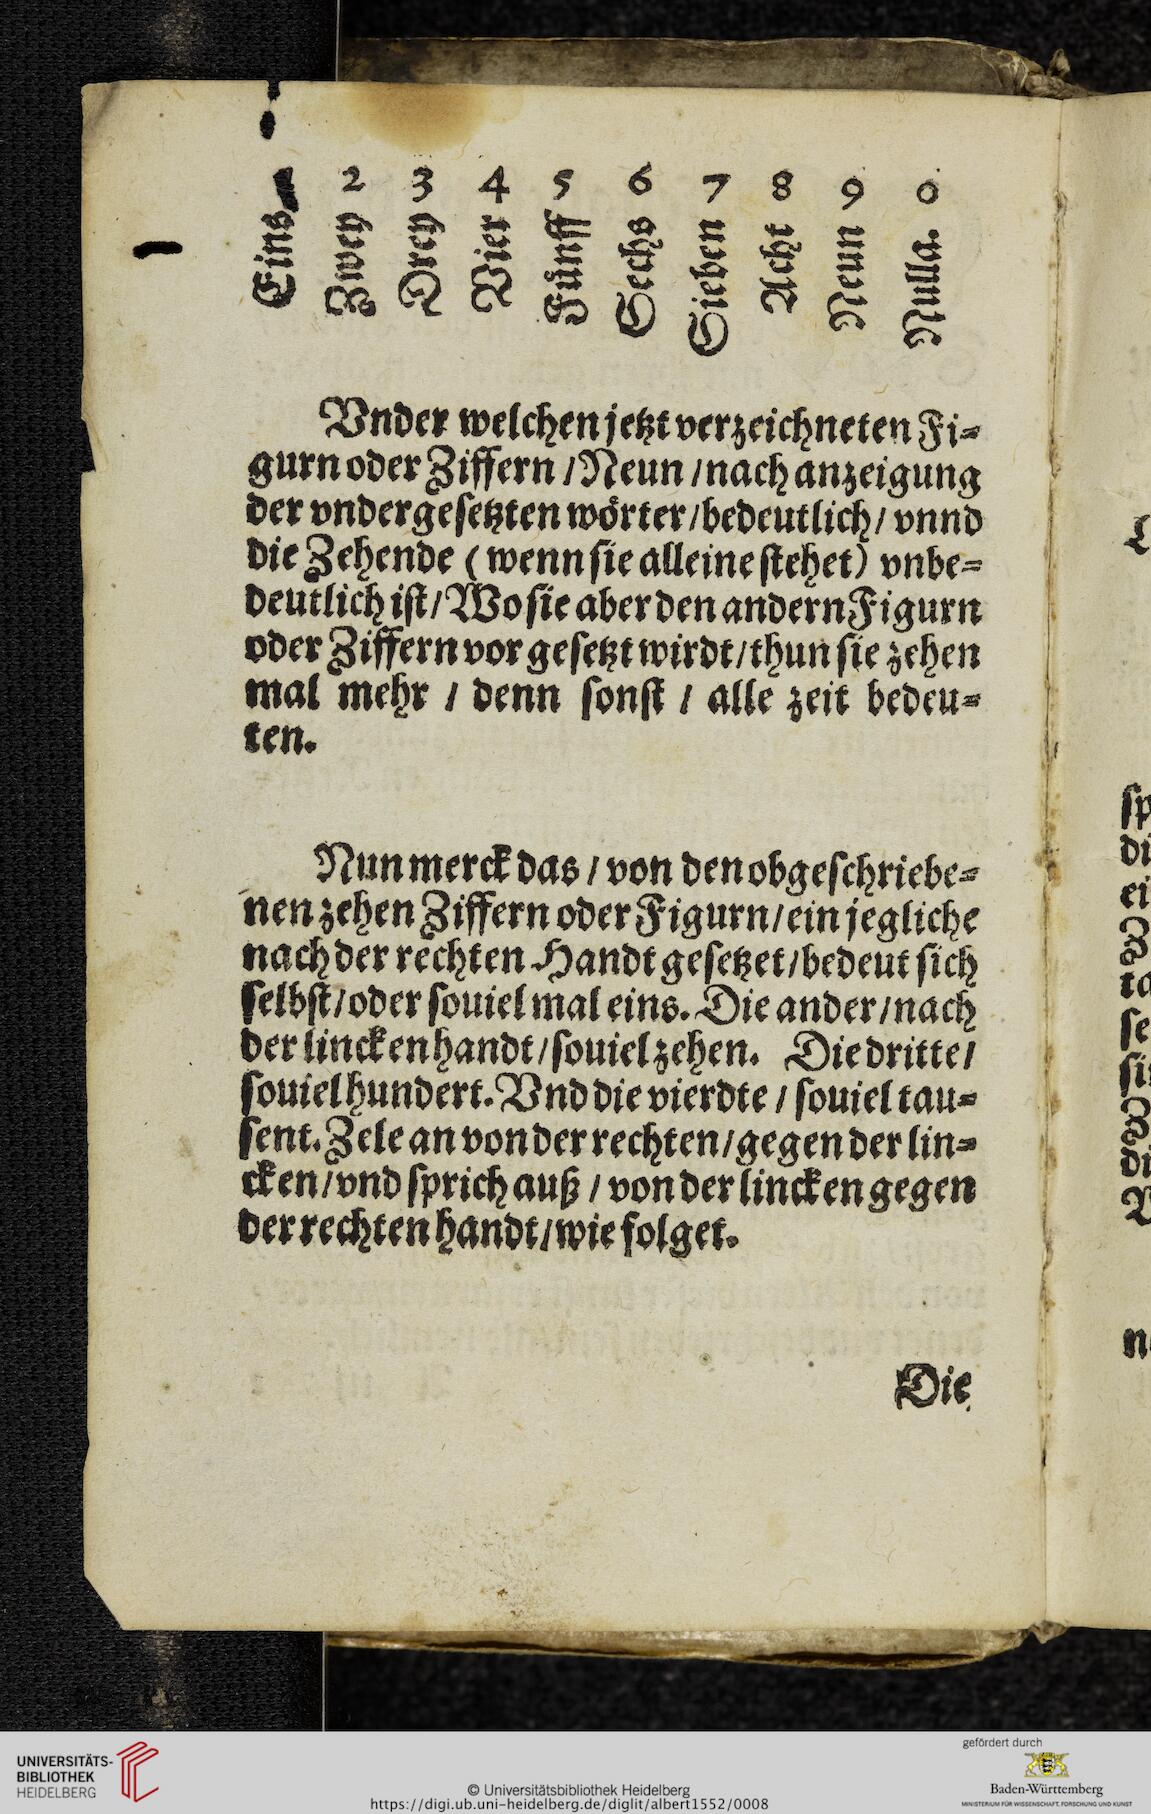 1 2 3 4 5 6 7 8 9 0
Eins Zwey Drey Vier Fünff Sechs Sieben Acht Neun Nulla.
Vnder welchen jetzt verzeichneten Fi⸗
gurn oder Ziffern / Neun / nach anzeigung
der vndergesetzten wörter / bedeutlich / vnnd
die Zehende (wenn sie alleine stehet) vnbe⸗
deutlich ist / Wo sie aber den andern Figurn
oder Ziffern vor gesetzt wirdt / thun sie zehen
mal mehr / denn sonst / alle zeit bedeu⸗
ten.
Nun merck das / von den obgeschriebe⸗
nen zehen Ziffern oder Figurn / ein jegliche
nach der rechten Handt gesetzet / bedeut sich
selbst / oder souiel mal eins. Die ander / nach
der lincken handt / souiel zehen. Die dritte /
souiel hundert. Vnd die vierdte / souiel tau⸗
sent. Zele an von der rechten / gegen der lin⸗
cken / vnd sprich auß / von der lincken gegen
der rechten handt / wie folget.
Die
UNIVERSITÄTS-
BIBLIOTHEK
HEIDELBERG
© Universitätsbibliothek Heidelberg
https://digi.ub.uni-heidelberg.de/diglit/albert1552/0008
gefördert durch
Baden-Württemberg
MINISTERIUM FÜR WISSENSCHAFT, FORSCHUNG UND KUNST